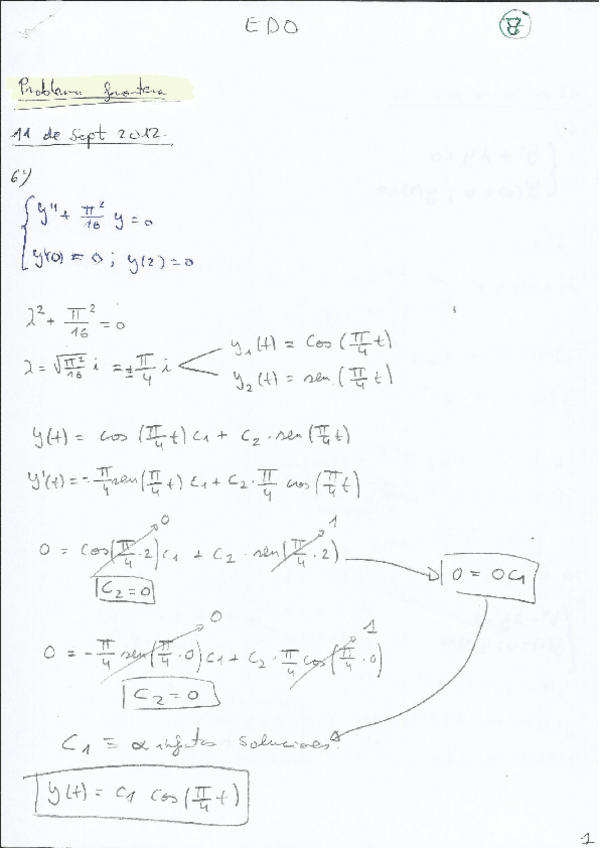 EDO
8
Problema frontera
11 de Sept 2012.
6º)
y'' + π²/16 y = 0
y'(0) = 0 ; y(2) = 0
λ² + π²/16 = 0
λ = √(π²/16) i = ± π/4 i
y₁(t) = cos (π/4 t)
y₂(t) = sen (π/4 t)
y(t) = cos (π/4 t) c₁ + c₂ · sen (π/4 t)
y'(t) = - π/4 sen (π/4 t) c₁ + c₂ · π/4 cos (π/4 t)
0 1
0 = cos (π/4 · 2) c₁ + c₂ · sen (π/4 · 2)
0 = 0C₁
C₂ = 0
0 1
0 = - π/4 sen (π/4 · 0) c₁ + c₂ · π/4 cos (π/4 · 0)
C₂ = 0
C₁ = α infitas soluciones
y(t) = c₁ cos (π/4 t)
1